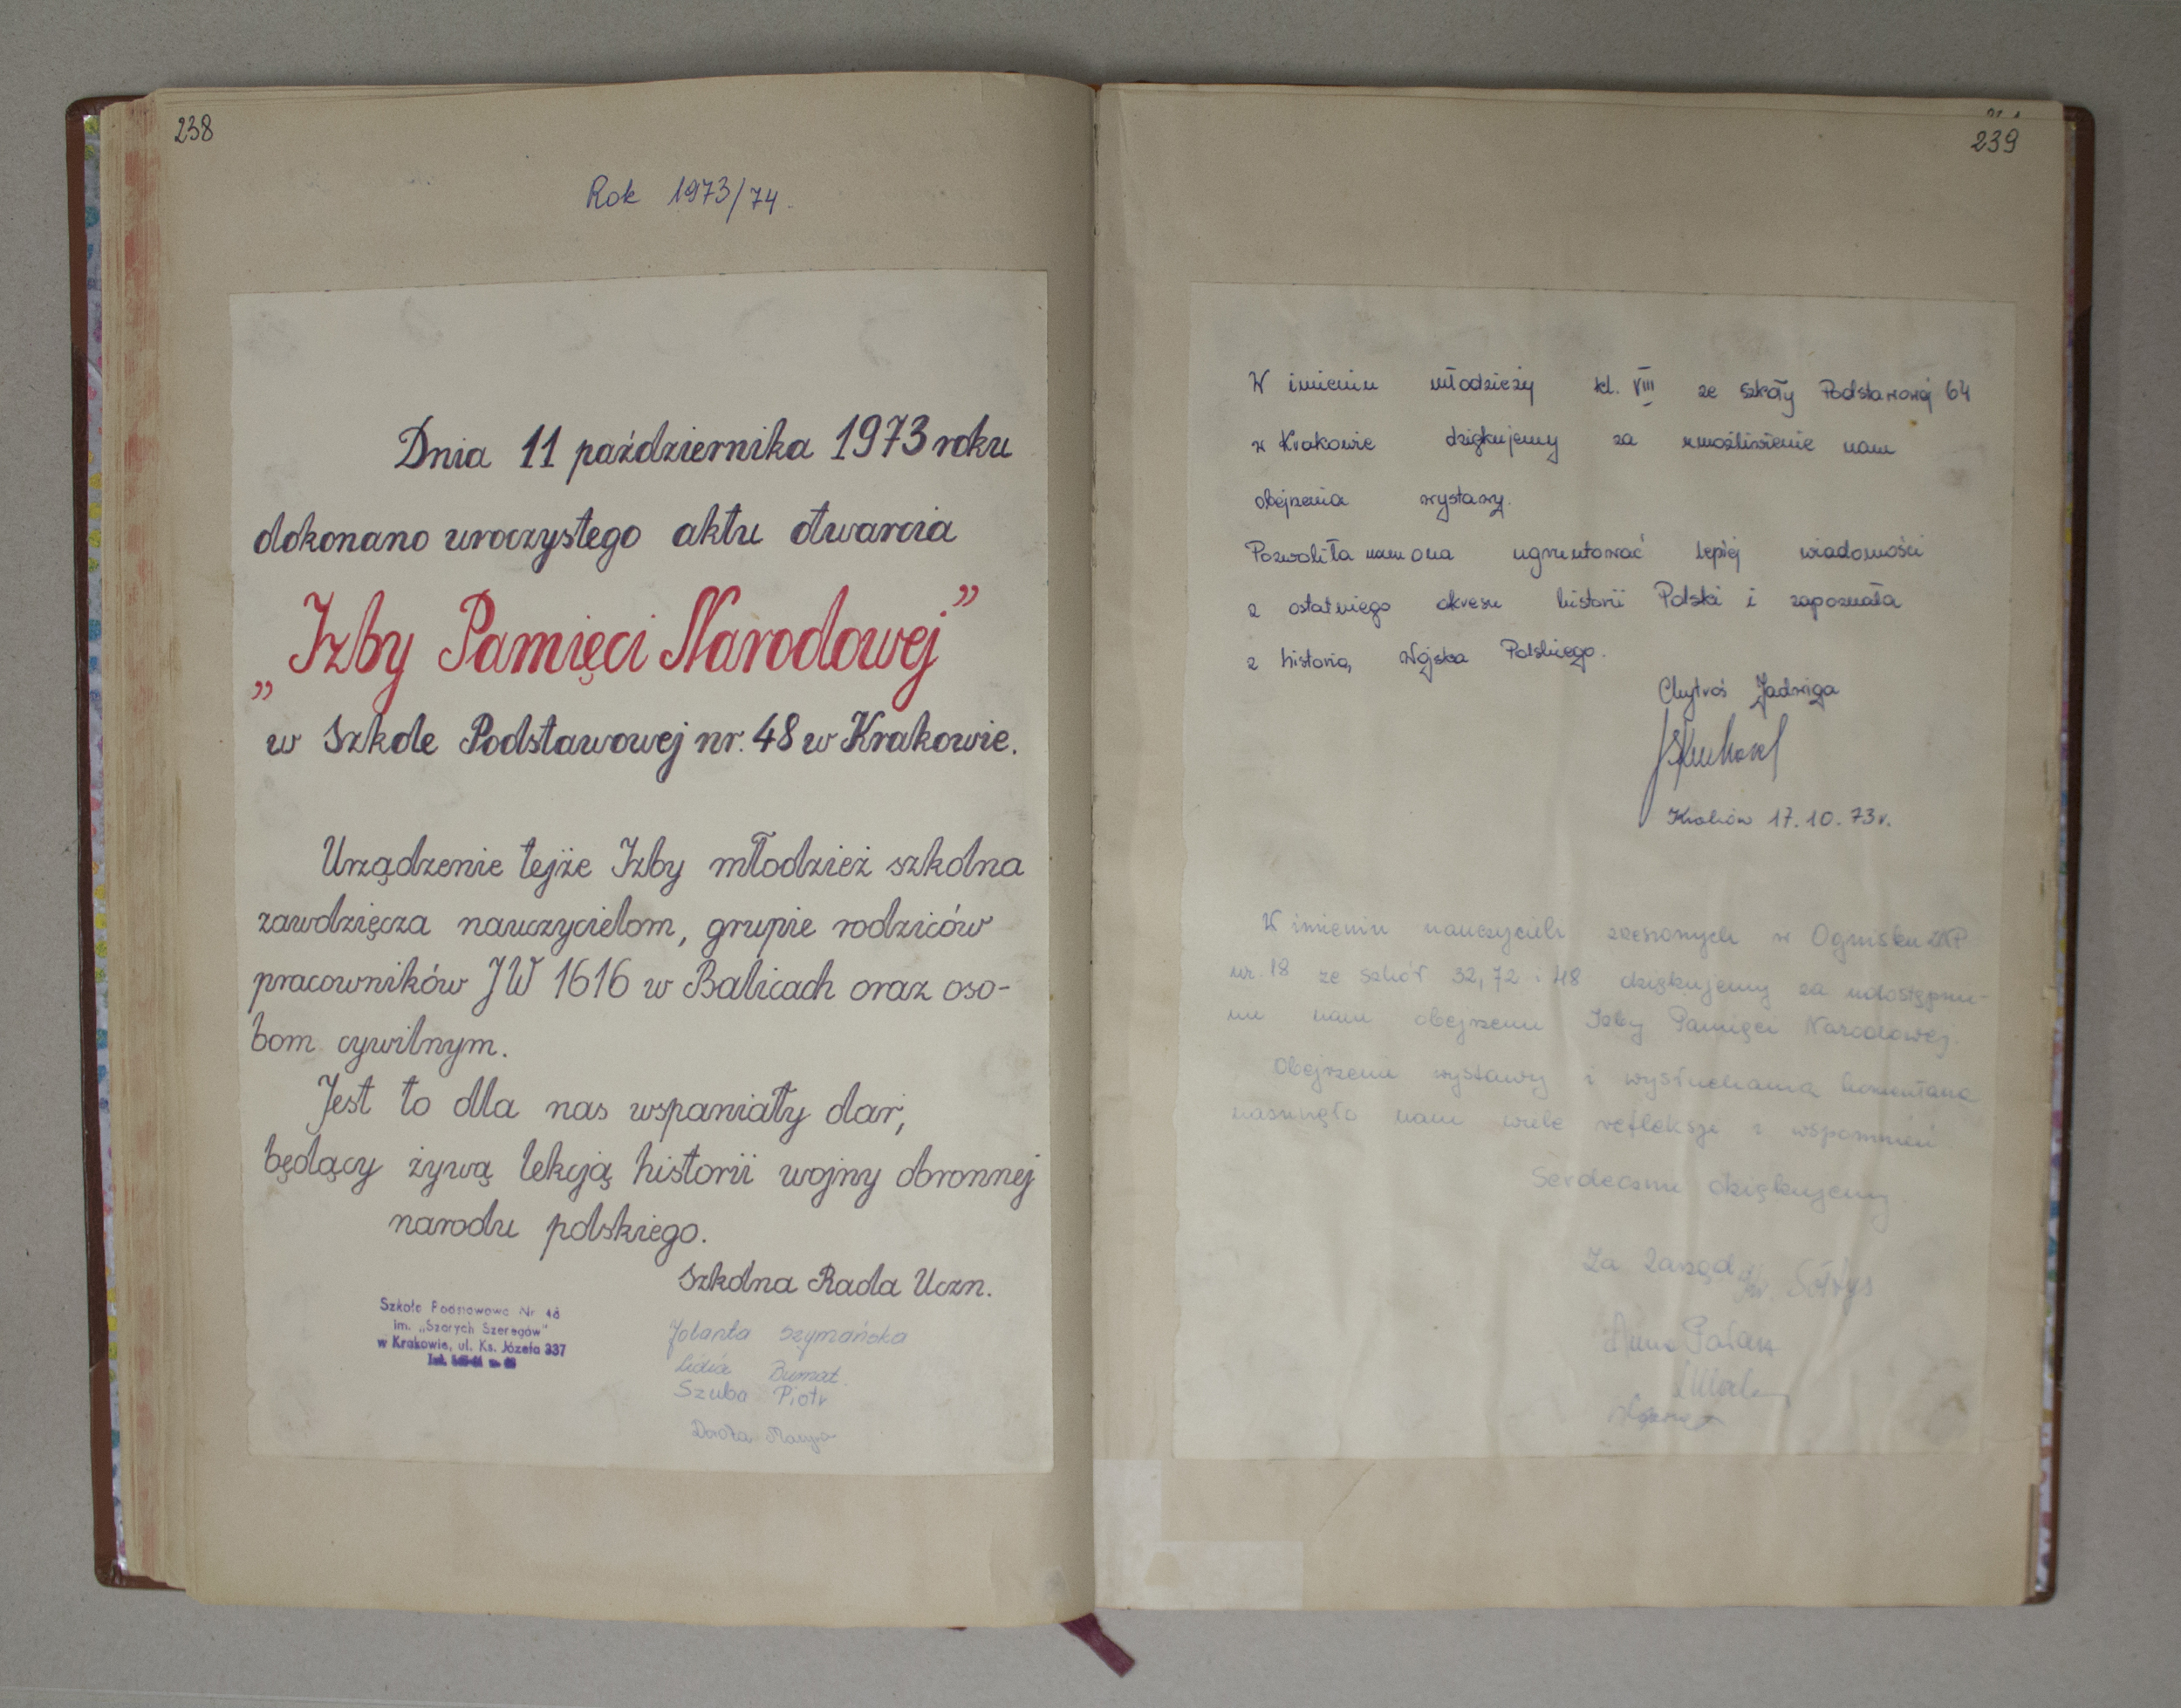 238
Rok 1973/74.
Dnia 11 października 1973 roku
dokonano uroczystego aktu otwarcia
„Izby Pamięci Narodowej”
w Szkole Podstawowej nr. 48 w Krakowie.
Urządzenie tejże Izby młodzież szkolna
zawdzięcza nauczycielom, grupie rodziców
pracowników JW 1616 w Balicach oraz oso-
bom cywilnym.
Jest to dla nas wspaniały dar,
będący żywą lekcją historii wojny obronnej
narodu polskiego.
Szkolna Rada Uczn.
Szkoła Podstawowa Nr 48
im. „Szarych Szeregów”
w Krakowie, ul. Ks. Józefa 337
Jolanta Szymańska
Lidia
Szuba Piotr
Dorota
239
W imieniu młodzieży kl. VIII ze szkoły Podstawowej 64
w Krakowie dziękujemy za umożliwienie nam
obejrzenia wystawy.
Pozwoliła nam ona ugruntować lepiej wiadomości
z ostatniego okresu historii Polski i zapoznała
z historią Wojska Polskiego.
Chytroś Jadwiga
Kraków 17.10.73r.
W imieniu nauczycieli zrzeszonych w Ognisku ZNP
nr. 18 ze szkół 32, 72 i 48 dziękujemy za udostępnie-
nie nam obejrzenia Izby Pamięci Narodowej.
Obejrzenie wystawy i wysłuchania komentarza
nasunęło nam wiele refleksji i wspomnień
Serdecznie dziękujemy.
Za Zarząd Sołtys
Anna